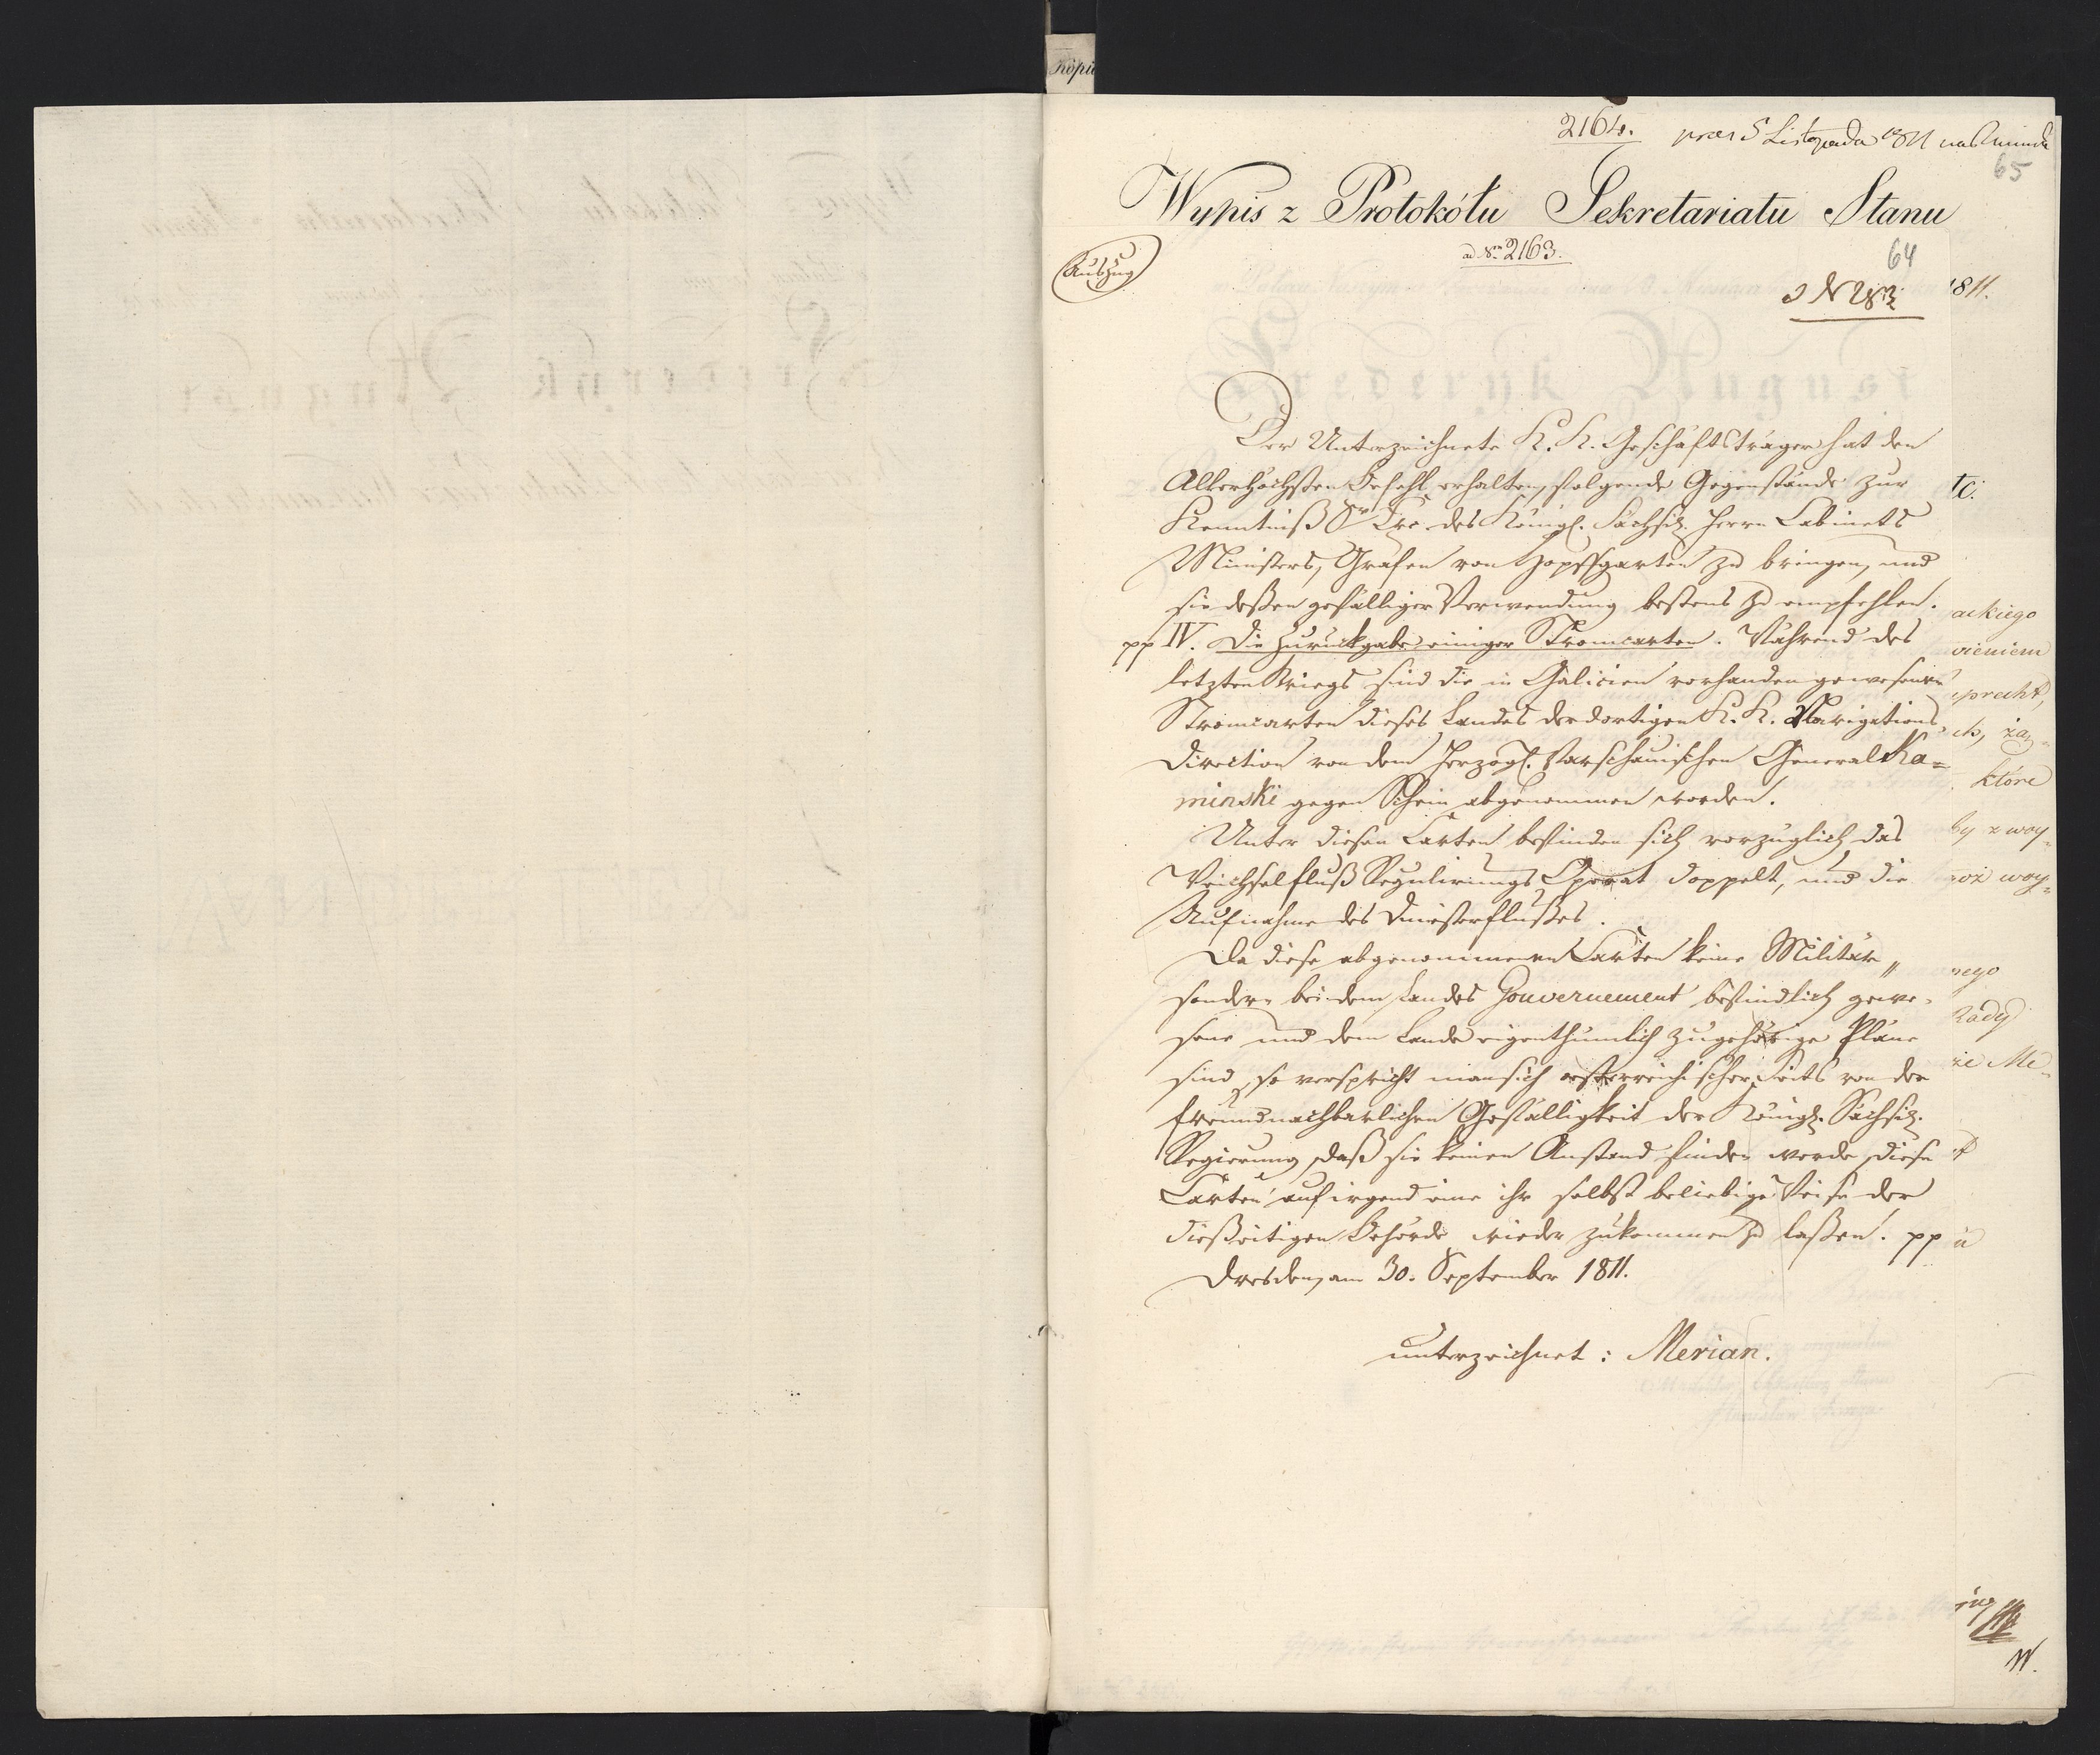 Kopia
2164. præs 5 Listopada 1811
65
Wypis z Protokółu Sekretariatu Stanu
ad Nrm 2163.
64
Auszug
1811.
Der Unterzeichnete K. K. Geschäftsträger hat den
Allerhöchsten Befehl erhalten, folgende Gegenstände zur
Kenntniß Sr Exc. des Königl. Sächsis. Herrn Cabinets
Ministers, Grafen von Hopffgarten zu bringen, und
sie deßen gefälliger Verwendung bestens zu empfehlen.
pp IV. Die Zurückgabe einiger Stromcarten. Während des
letzten Kriegs sind die in Galicien vorhanden gewesenen
Stromcarten dieses Landes der dortigen K. K. Navigations-
direction von dem Herzogl. Warschauischen General Ka=
minski gegen Schein abgenommen worden.
Unter diesen Carten befinden sich vorzüglich das
Weichselfluß Regulirungs Operat doppelt, und die
Aufnahme des Dniesterflußes.
Da diese abgenommenen Carten keine Militär„
sondern bei dem Landes Gouvernement befindlich gewe-
sene und dem Lande eigenthümlich zugehörige Pläne
sind, so verspricht man sich oesterreichischer Seits von der
freundnachbarlichen Gefälligkeit der Königl. Sächsis.
Regierung, daß sie keinen Anstand finden werde, diese
Carten auf irgend eine ihr selbst beliebige Weise der
dießeitigen Behörde wieder zukommen zu laßen. pp
Dresden, am 30. September 1811.
unterzeichnet: Merian.
tc.
ackiego
wieniem
precht,
które
by z woy=
woy=
nego
Rady
że Me=
W.